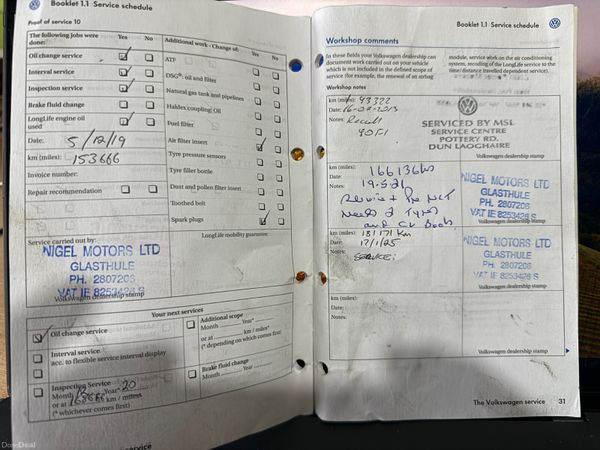 Booklet 1.1 Service schedule
Proof of service 10
The following jobs were done: Yes No
Oil change service
Interval service
Inspection service
Brake fluid change
LongLife engine oil used
Date: 5/12/19
km (miles): 153666
Invoice number:
Repair recommendation
Service carried out by:
NIGEL MOTORS LTD
GLASTHULE
PH. 2807206
VAT IE 8253426 S
Volkswagen dealership stamp
Additional work - Change of: Yes No
ATF
DSG®: oil and filter
Natural gas tank and pipelines
Haldex coupling: Oil
Fuel filter
Air filter insert
Tyre pressure sensors
Tyre filler bottle
Dust and pollen filter insert
Toothed belt
Spark plugs
LongLife mobility guarantee
Your next services
Oil change service
Interval service
acc. to flexible service interval display
Inspection Service
Month Year 20
or at km / miles
(* whichever comes first)
Additional scope
Month Year*
or at km / miles*
(* depending on which comes first)
Brake fluid change
Month Year
Booklet 1.1 Service schedule
Workshop comments
In these fields your Volkswagen dealership can
document work carried out on your vehicle
which is not included in the defined scope of
service (for example, the renewal of an airbag
module, service work on the air conditioning
system, recoding of the LongLife service to the
time/distance travelled dependent service).
Workshop notes
km (miles): 93322
Date: 16-07-2013
Notes: Recall
90F1
SERVICED BY MSL
SERVICE CENTRE
POTTERY RD.
DUN LAOGHAIRE
Volkswagen dealership stamp
km (miles): 166136km
Date: 19.5.21
Notes: Service + Pre NCT
Needs 2 Tyres
and CV Boots
NIGEL MOTORS LTD
GLASTHULE
PH. 2807206
VAT IE 8253426 S
Volkswagen dealership stamp
km (miles): 181171 Km
Date: 17/1/25
Notes: SERVICE:
NIGEL MOTORS LTD
GLASTHULE
PH. 2807206
VAT IE 8253426 S
Volkswagen dealership stamp
km (miles):
Date:
Notes:
Volkswagen dealership stamp
The Volkswagen service 31
DoneDeal